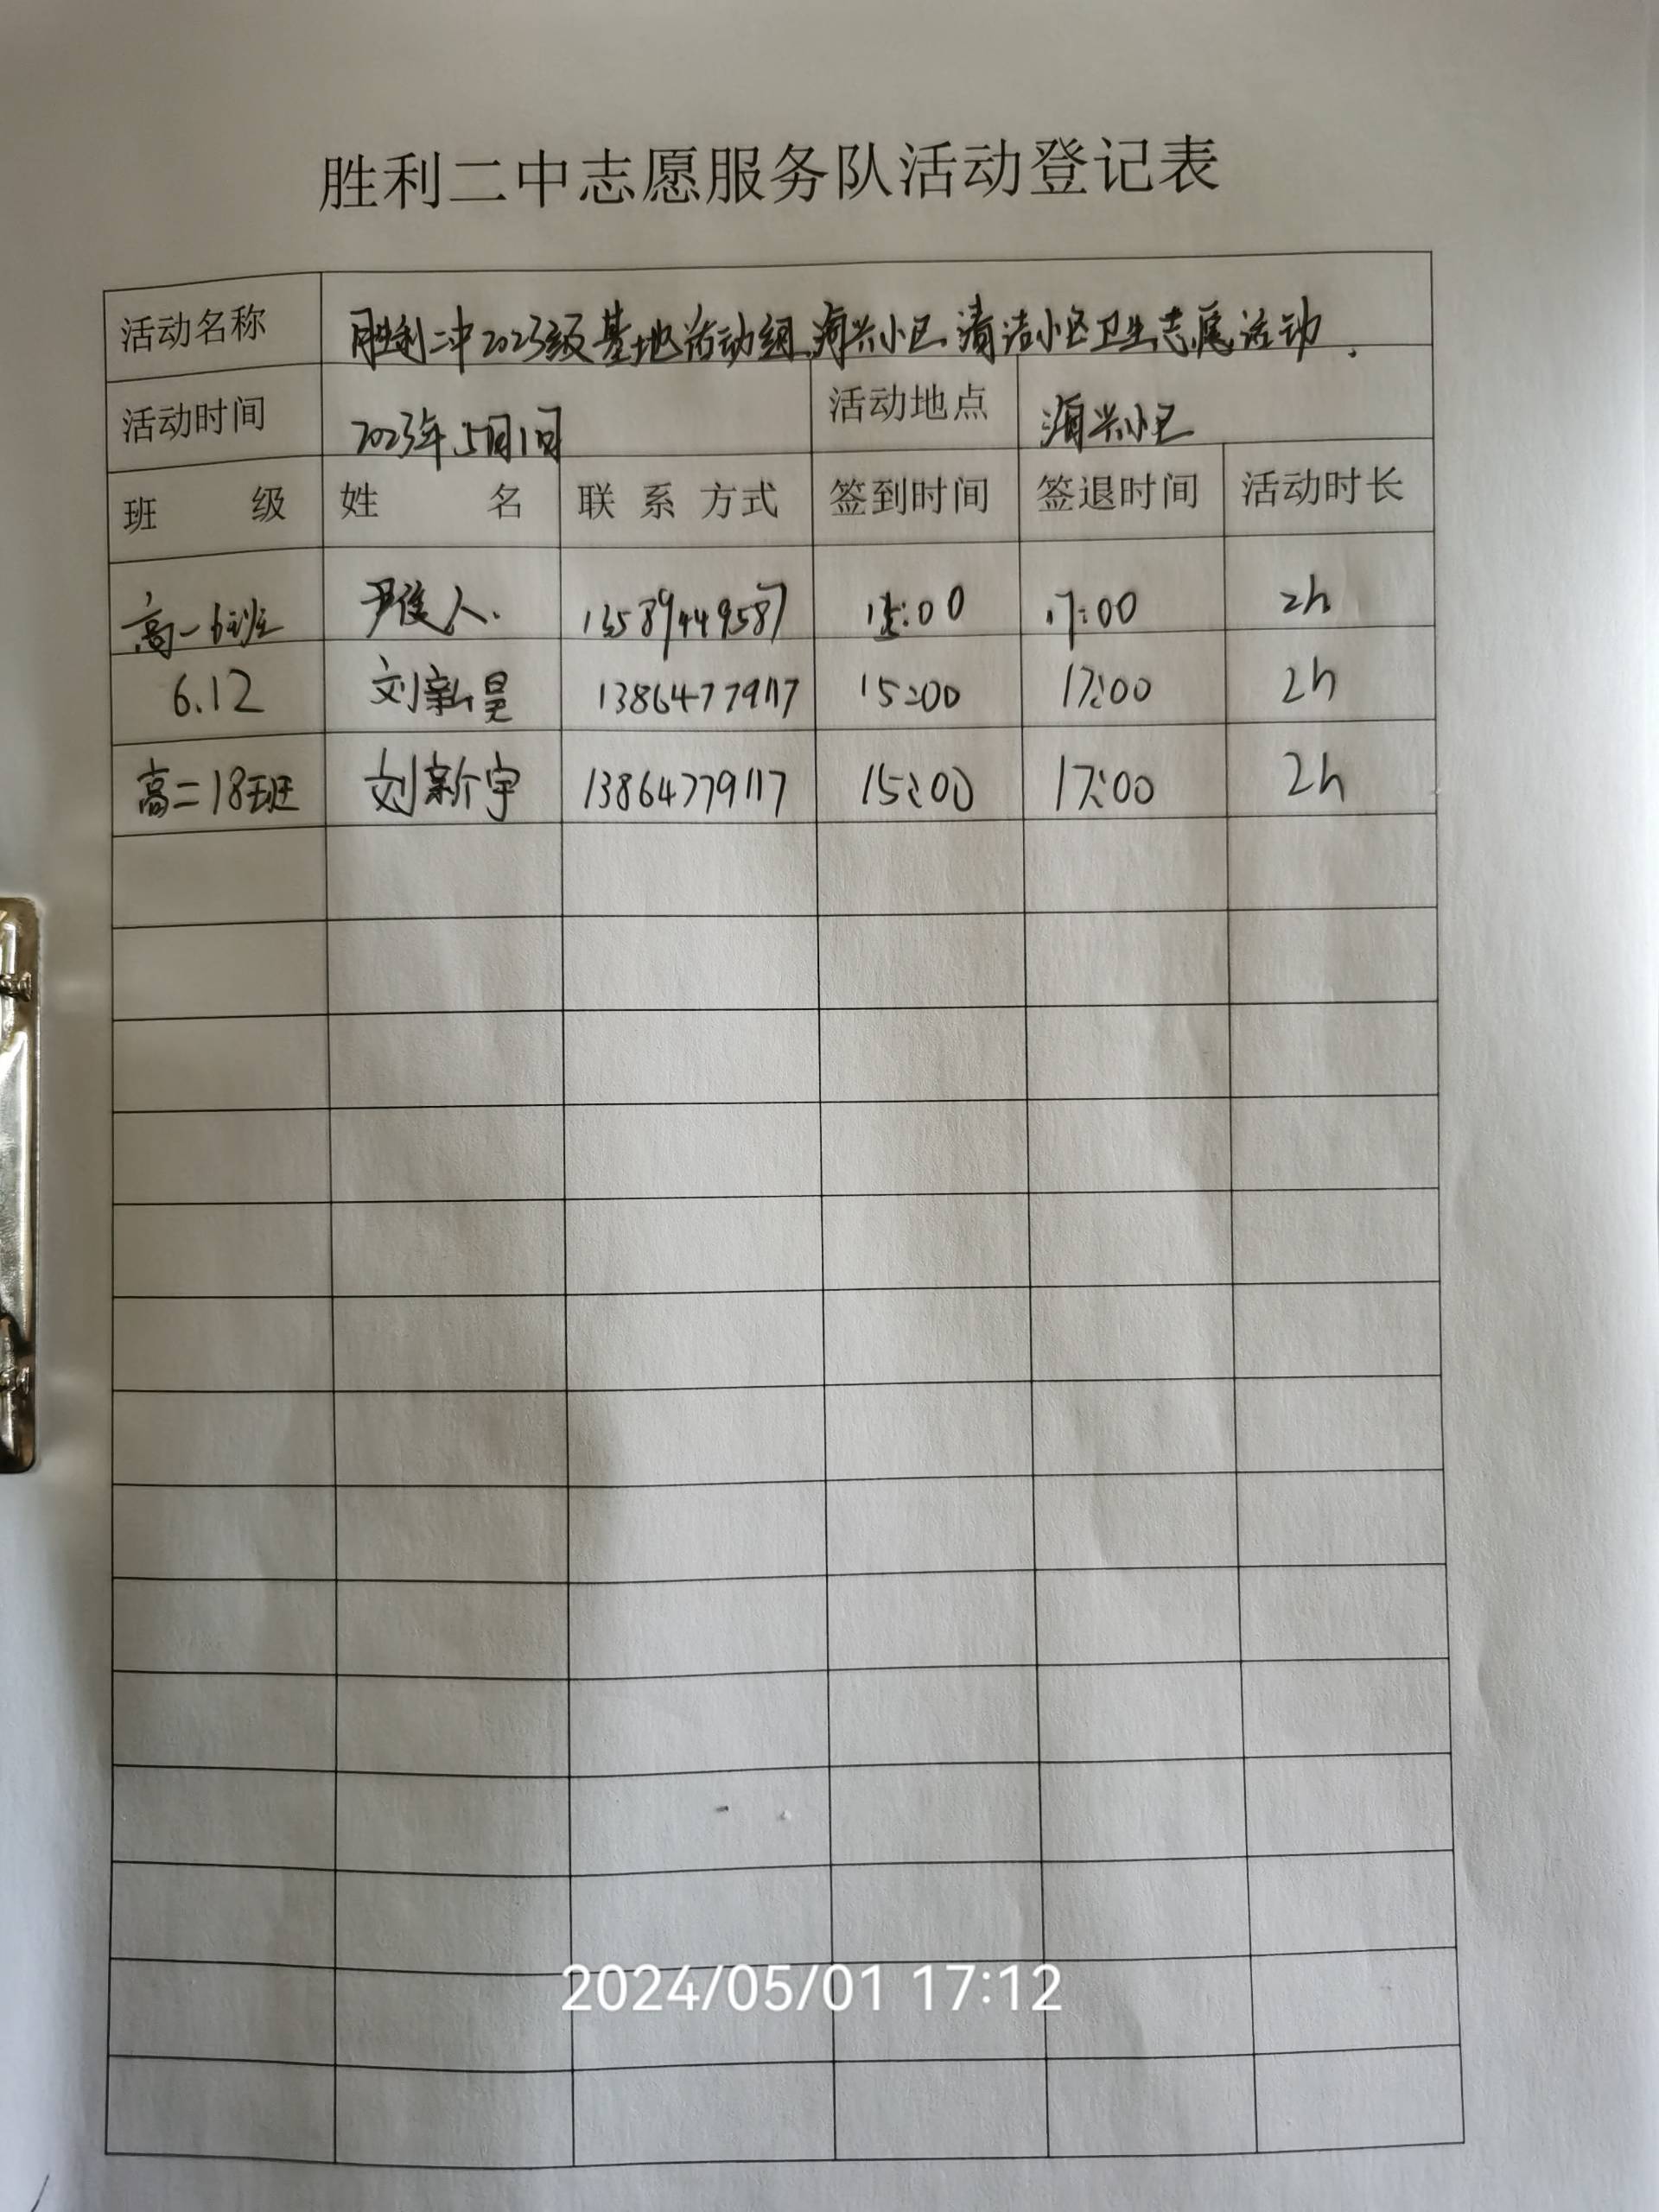 胜利二中志愿服务队活动登记表
活动名称 胜利二中2023级基地活动组海兴小区清洁小区卫生志愿活动.
活动时间 2023年5月1日 活动地点 海兴小区
班 级 姓 名 联 系 方式 签到时间 签退时间 活动时长
高一6班 尹 人. 13589449587 15:00 17:00 2h
6.12 刘新昊 13864779117 15:00 17:00 2h
高二18班 刘新宇 13864779117 15:00 17:00 2h
2024/05/01 17:12